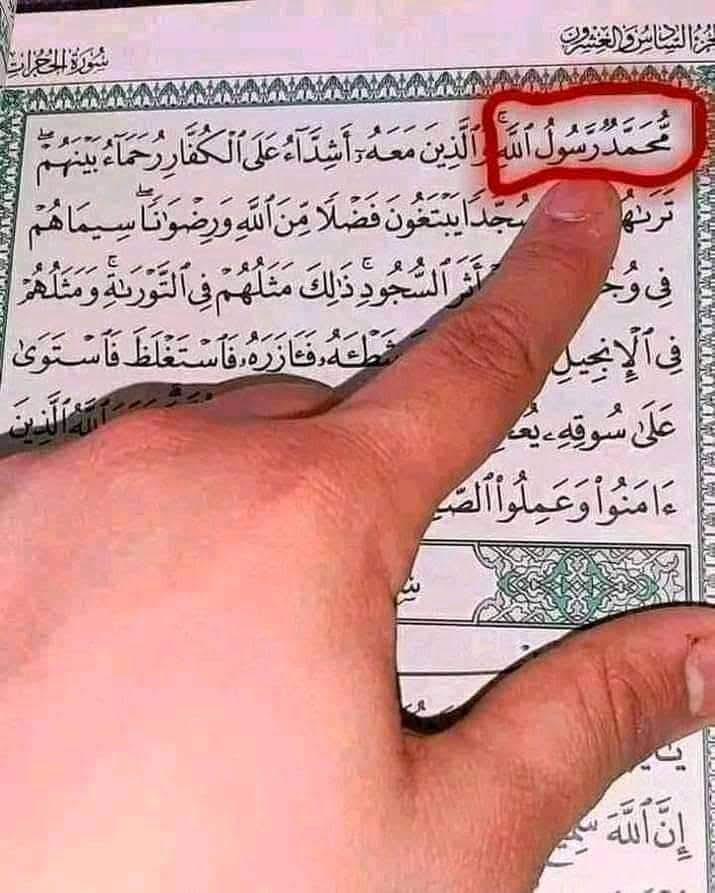 الجزء السادس والعشرون
سورة الحجرات
مُّحَمَّدٌ رَّسُولُ ٱللَّهِۚ وَٱلَّذِينَ مَعَهُۥٓ أَشِدَّآءُ عَلَى ٱلْكُفَّارِ رُحَمَآءُ بَيْنَهُمْۖ
تَرَىٰهُمْ سُجَّدًا يَبْتَغُونَ فَضْلًا مِّنَ ٱللَّهِ وَرِضْوَٰنًاۖ سِيمَاهُمْ
فِى أَثَرِ ٱلسُّجُودِۚ ذَٰلِكَ مَثَلُهُمْ فِى ٱلتَّوْرَىٰةِۚ وَمَثَلُهُمْ
فِى ٱلْإِنجِيلِ شَطْـَٔهُۥ فَـَٔازَرَهُۥ فَٱسْتَغْلَظَ فَٱسْتَوَىٰ
عَلَىٰ سُوقِهِۦ ٱللَّهُ ٱلَّذِينَ
ءَامَنُوا۟ وَعَمِلُوا۟
إِنَّ ٱللَّهَ